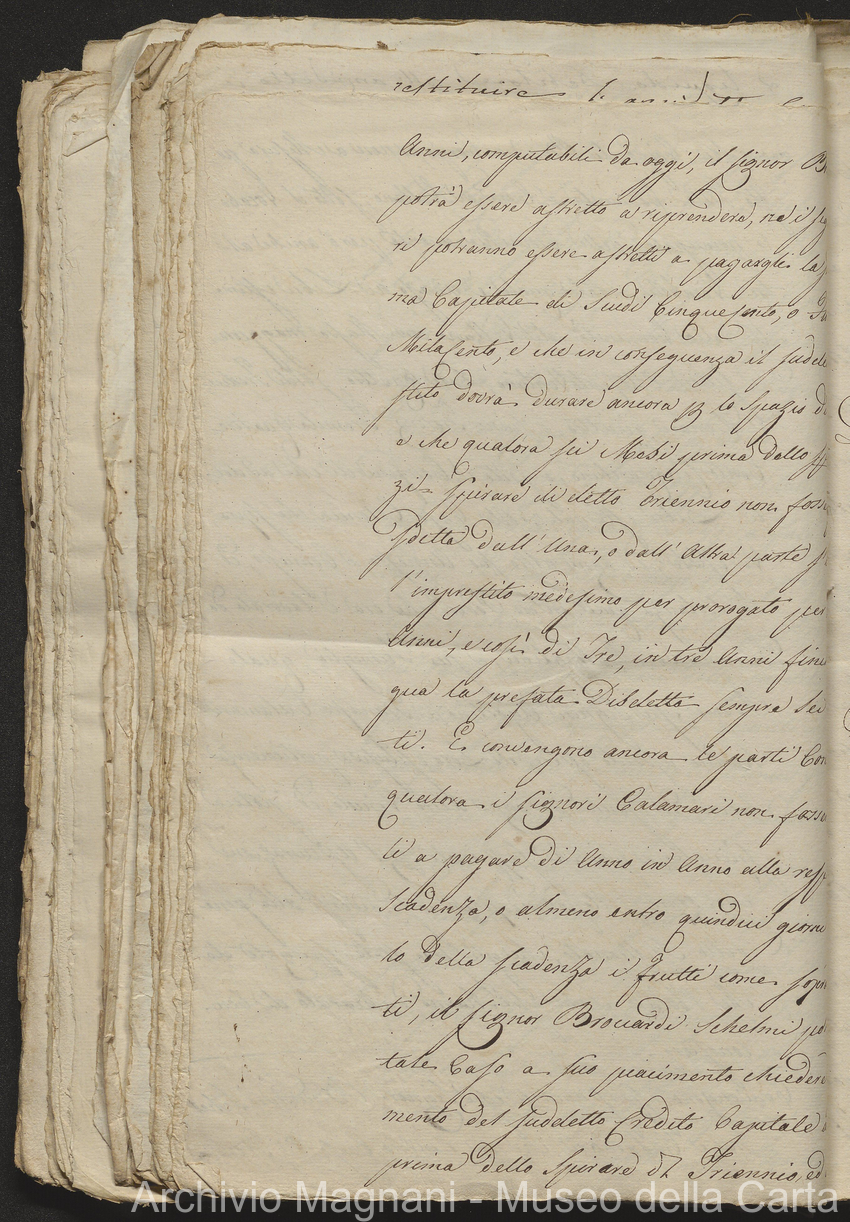 restituire
Anni, computabili da oggi, il Signor B
potrà essere astretto a riprendere, ne i Sig
ri potranno essere astretti a pagargli la
ma Capitale di Scudi Cinquecento, o
Milacento, e che in conseguenza il sudde
stito dovrà durare ancora p lo spazio d
e che qualora sei Mesi prima dello
zi= spirare di detto Triennio non foss
sdetta dall' Una, o dall' Altra parte s
l'imprestito medesimo per prorogato per
Anni, e così di Tre, in tre Anni fin
qua la prefata Disdetta sempre Sei
ti. E convengono ancora le parti Con
qualora i Signori Calamari non foss
ti a pagare di Anno in Anno alla resp
Scadenza, o almeno entro quindici giorni
to della scadenza i frutti come sopr
ti, il Signor Brouardi Schelmi po
tale Caso a suo piacimento chieder
mento del suddetto Credito Capitale
prima dello Spirare di Triennio, ed
Archivio Magnani - Museo della Carta